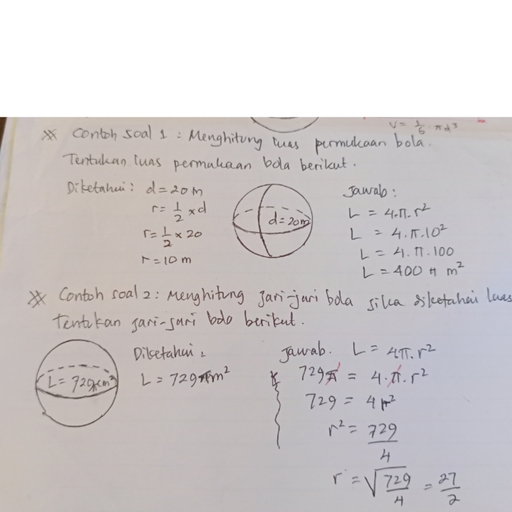 V = 1/6 πd³
Contoh soal 1 : Menghitung luas permukaan bola.
Tentukan luas permukaan bola berikut.
Diketahui : d = 20 m
r = 1/2 x d
r = 1/2 x 20
r = 10 m
d = 20 m
Jawab :
L = 4.π.r²
L = 4.π.10²
L = 4.π.100
L = 400 π m²
Contoh soal 2 : Menghitung jari-jari bola jika diketahui luas
Tentukan jari-jari bola berikut.
L = 729πcm²
Diketahui :
L = 729πm²
Jawab. L = 4π.r²
729π = 4.π.r²
729 = 4r²
r² = 729/4
r = √729/4 = 27/2